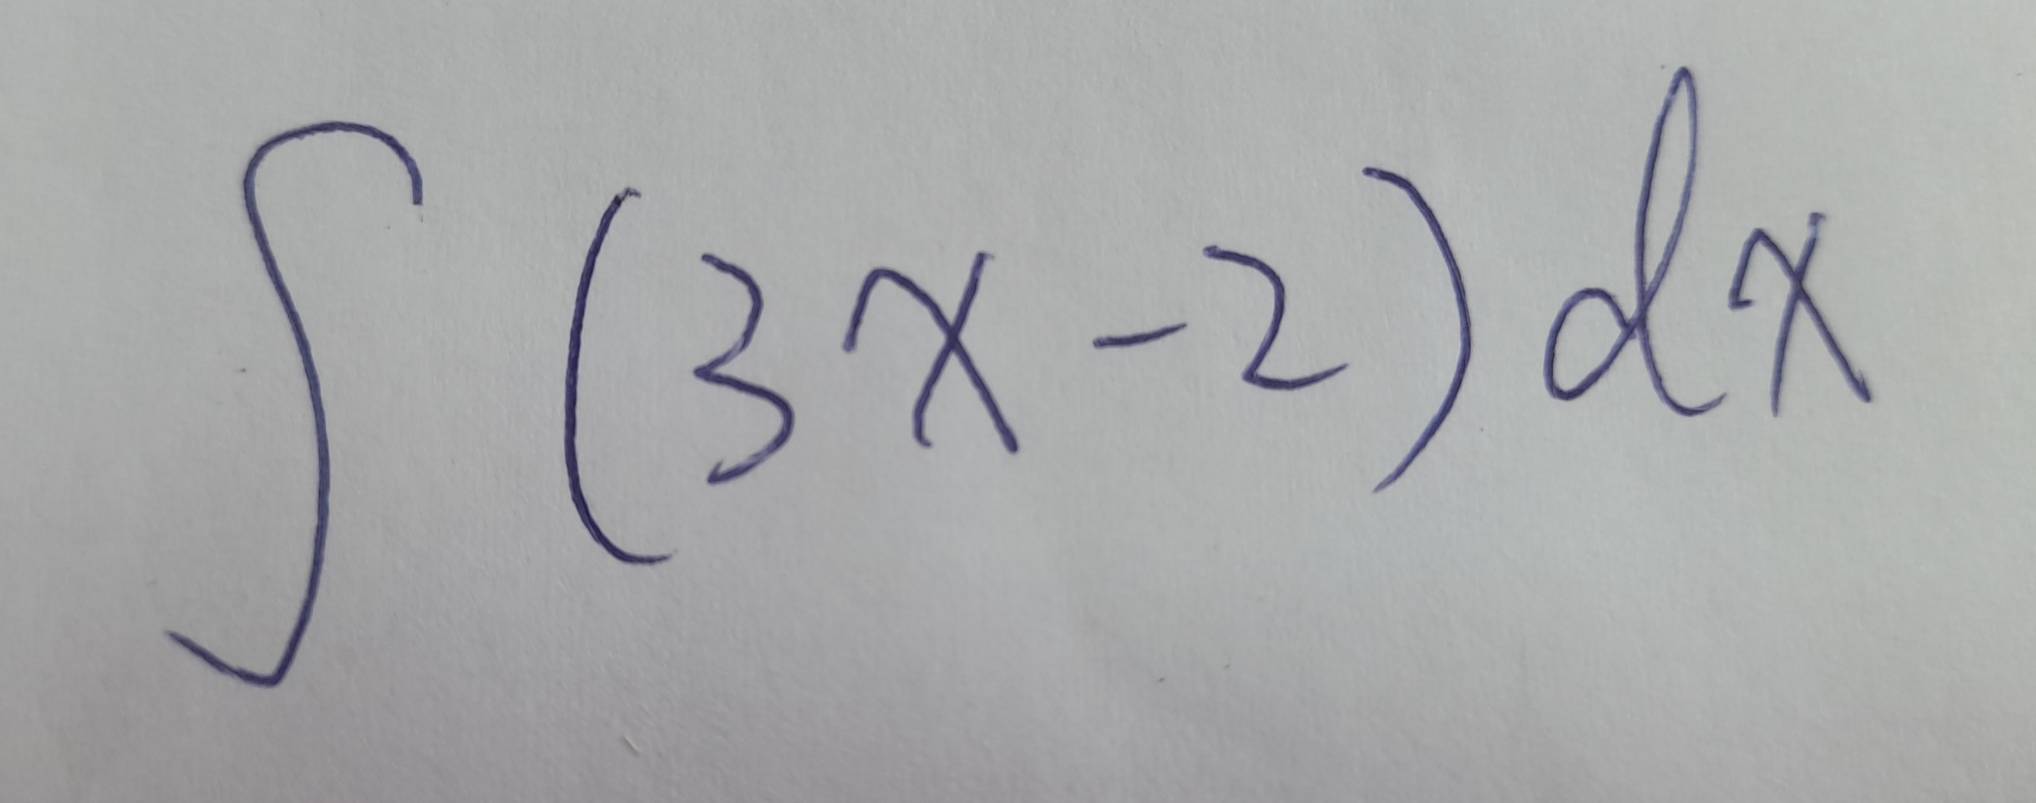 ∫ (3x - 2) dx